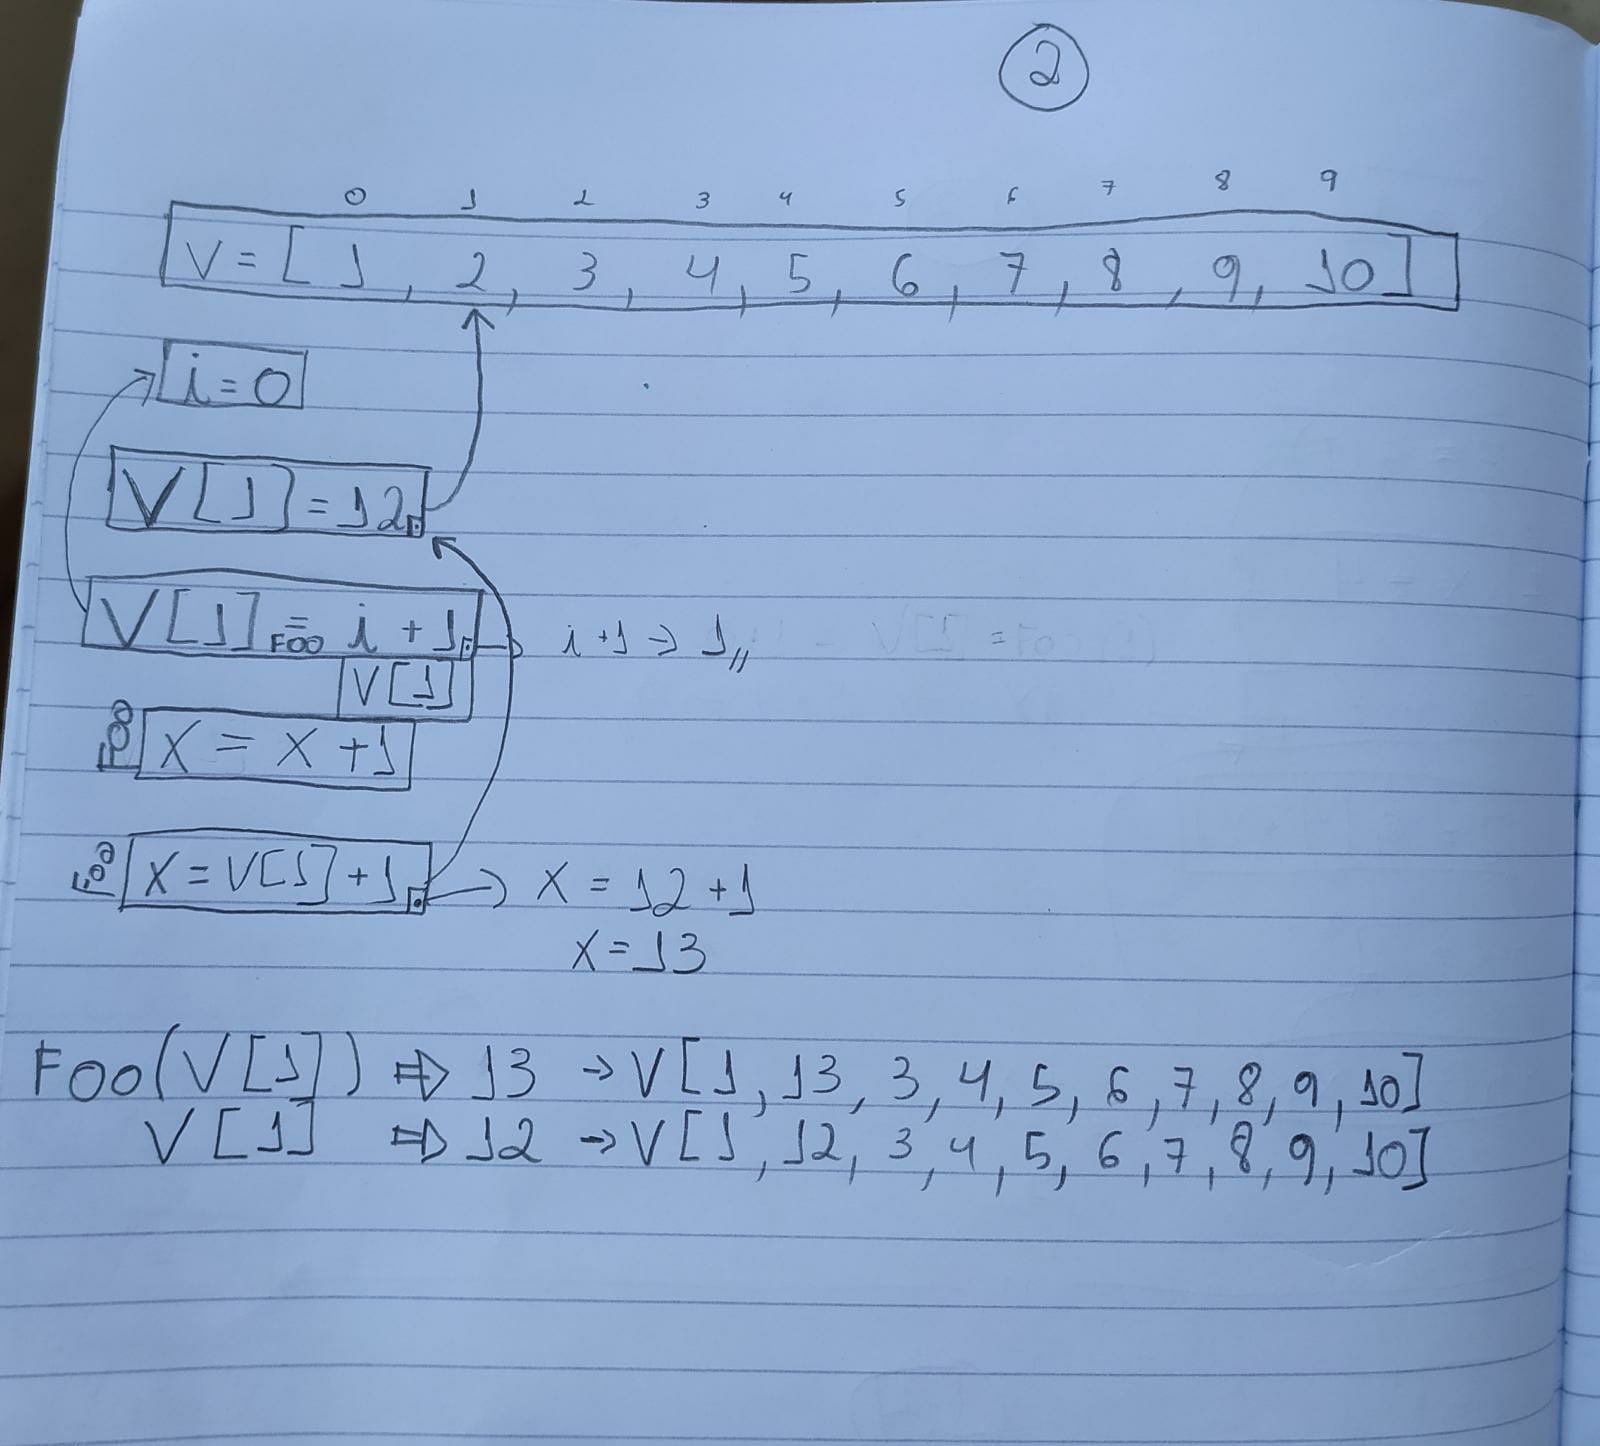 2
0 1 2 3 4 5 6 7 8 9
V = [ 1, 2, 3, 4, 5, 6, 7, 8, 9, 10 ]
i = 0
V[1] = 12
V[1] = i + 1 → i + 1 → 1 //
FOO
V[1]
FOO X = X + 1
FOO X = V[1] + 1 → X = 12 + 1
X = 13
FOO(V[1]) ⇒ 13 → V[1, 13, 3, 4, 5, 6, 7, 8, 9, 10]
V[1] ⇒ 12 → V[1, 12, 3, 4, 5, 6, 7, 8, 9, 10]